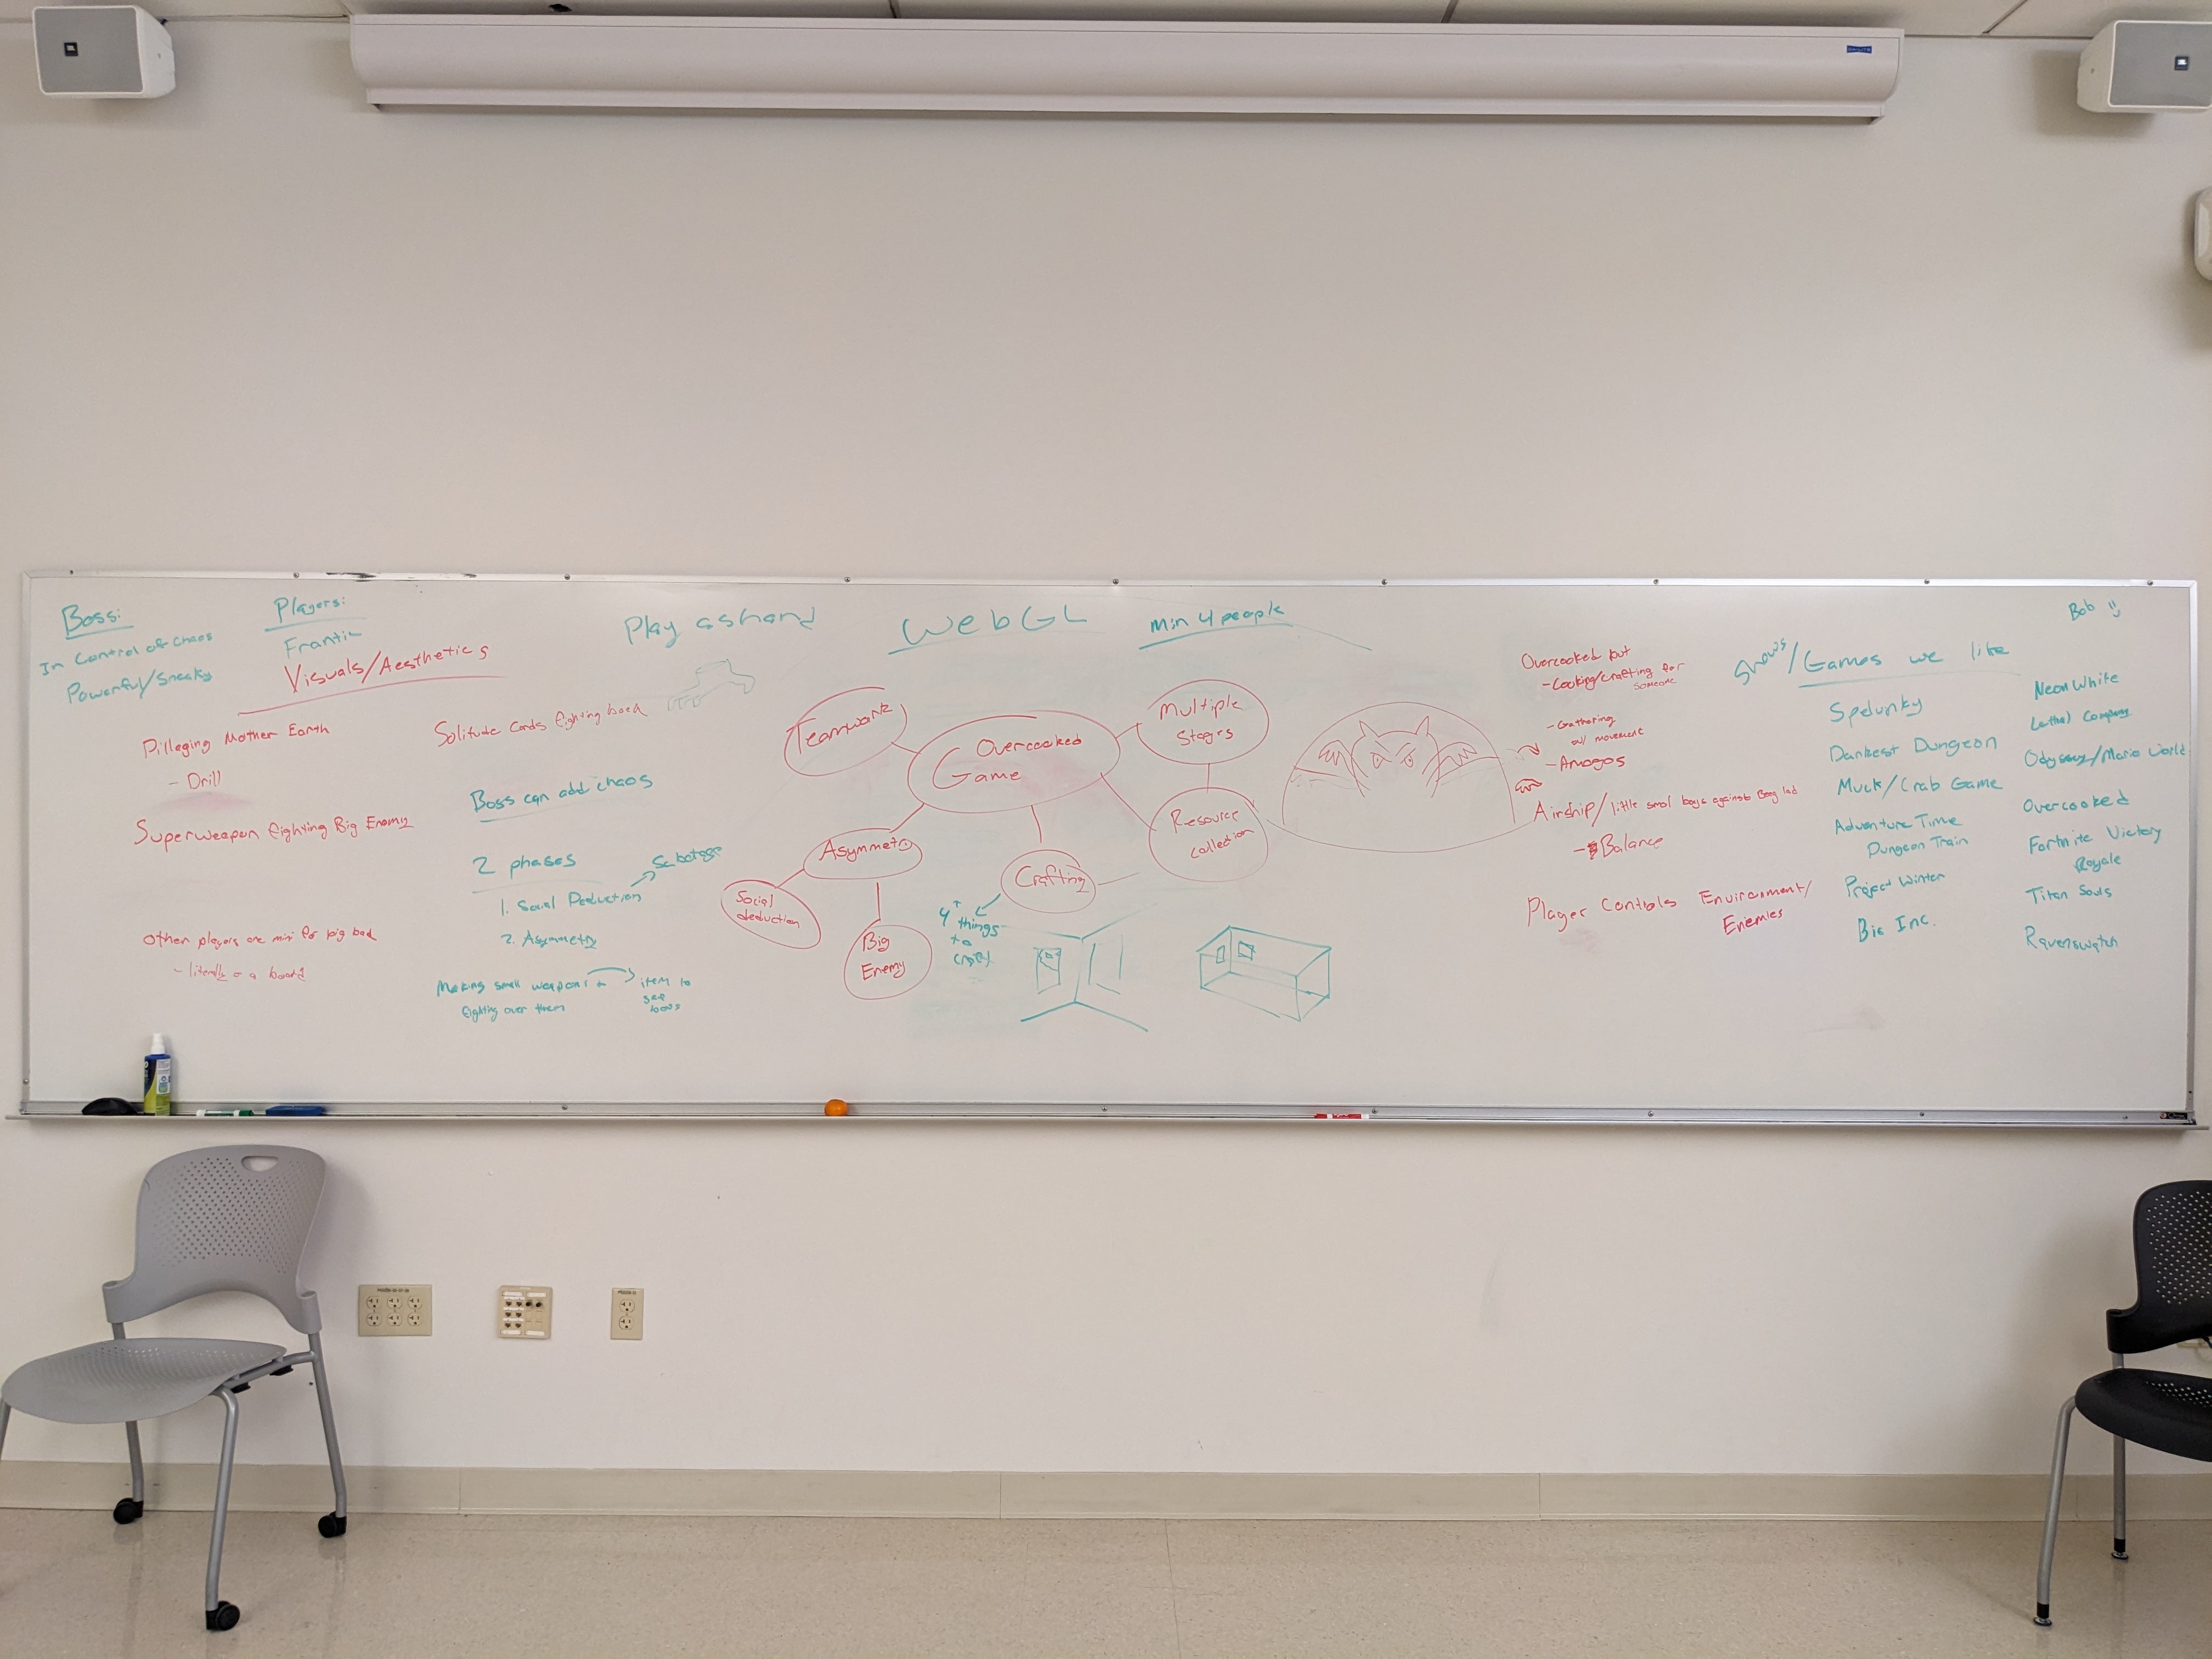 Boss:
In Control of chaos
Powerful/Sneaky
Players:
Frantic
Visuals/Aesthetics
Pillaging Mother Earth
- Drill
Superweapon fighting Big Enemy
Other players are mini for big bad
- literally on a board
Solitude Cards fighting board
Boss can add chaos
2 phases
1. Social Deduction
Sabotage
2. Asymmetry
Making small weapons
fighting over them
item to
see
boss
Play as hand
WebGL
Min 4 people
Teamwork
Overcooked
Game
Multiple
Stages
Resource
collection
Asymmetry
Social
deduction
Big
Enemy
Crafting
4+
things
to
craft
Overcooked but
- Cooking/crafting for
someone
- Gathering
w/ movement
- Amogos
Airship/little smol boys against Beeg lad
- Balance
Player Controls Environment/
Enemies
Bob
Shows/Games we like
Spelunky
Darkest Dungeon
Muck/Crab Game
Adventure Time
Dungeon Train
Project Winter
Big Inc.
Neon White
Lethal Company
Odyssey/Mario World
Overcooked
Fortnite Victory
Royale
Titan Souls
Ravenswatch
JBL
DA-LITE